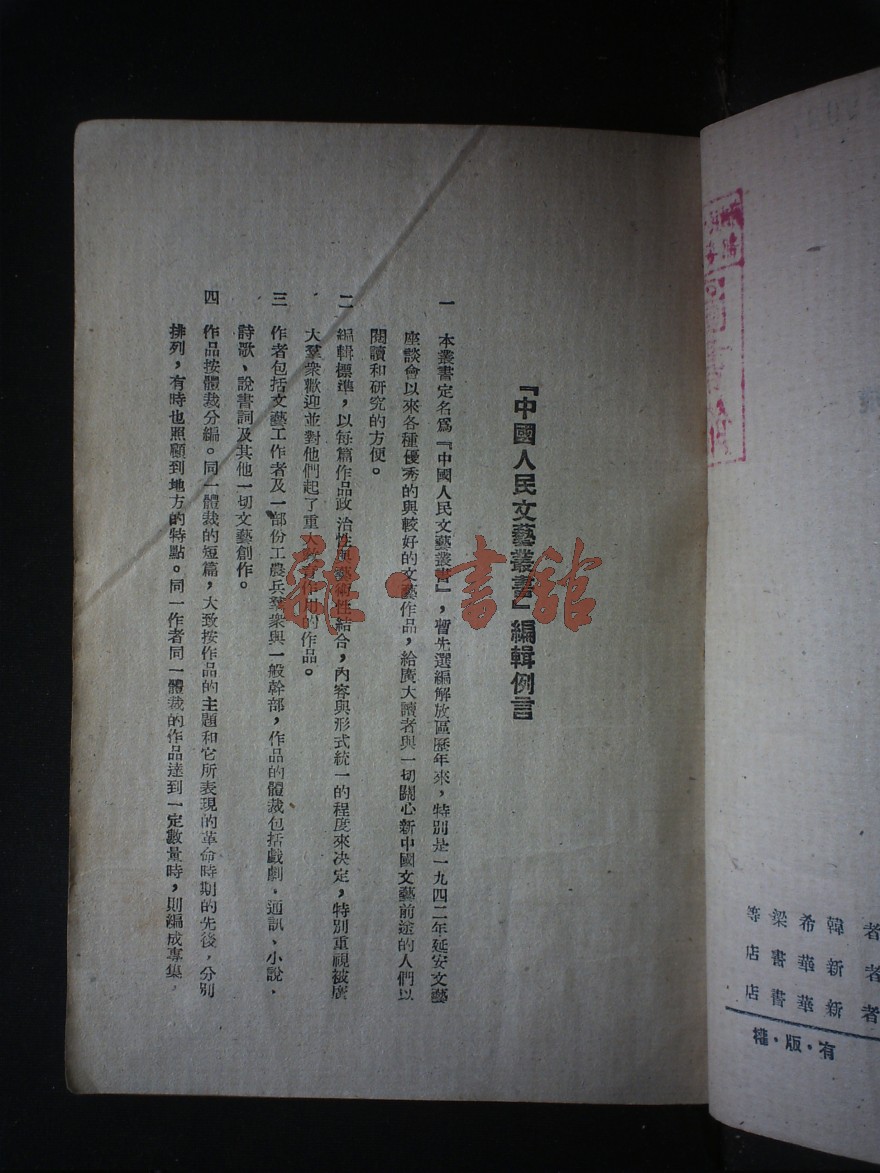 『中國人民文藝叢書』編輯例言
一 本叢書定名爲『中國人民文藝叢書』，暫先選編解放區歷年來，特別是一九四二年延安文藝
座談會以來各種優秀的與較好的文藝作品，給廣大讀者與一切關心新中國文藝前途的人們以
閱讀和研究的方便。
二 編輯標準，以每篇作品政治性與藝術性結合，內容與形式統一的程度來決定，特別重視被廣
大羣衆歡迎並對他們起了重大教育作用的作品。
三 作者包括文藝工作者及一部份工農兵羣衆與一般幹部，作品的體裁包括戲劇、通訊、小說、
詩歌、說書詞及其他一切文藝創作。
四 作品按體裁分編。同一體裁的短篇，大致按作品的主題和它所表現的革命時期的先後，分別
排列，有時也照顧到地方的特點。同一作者同一體裁的作品達到一定數量時，則編成專集，
者 韓希梁等
者 新華書店
者 新華書店
有·版·權
雜·書館